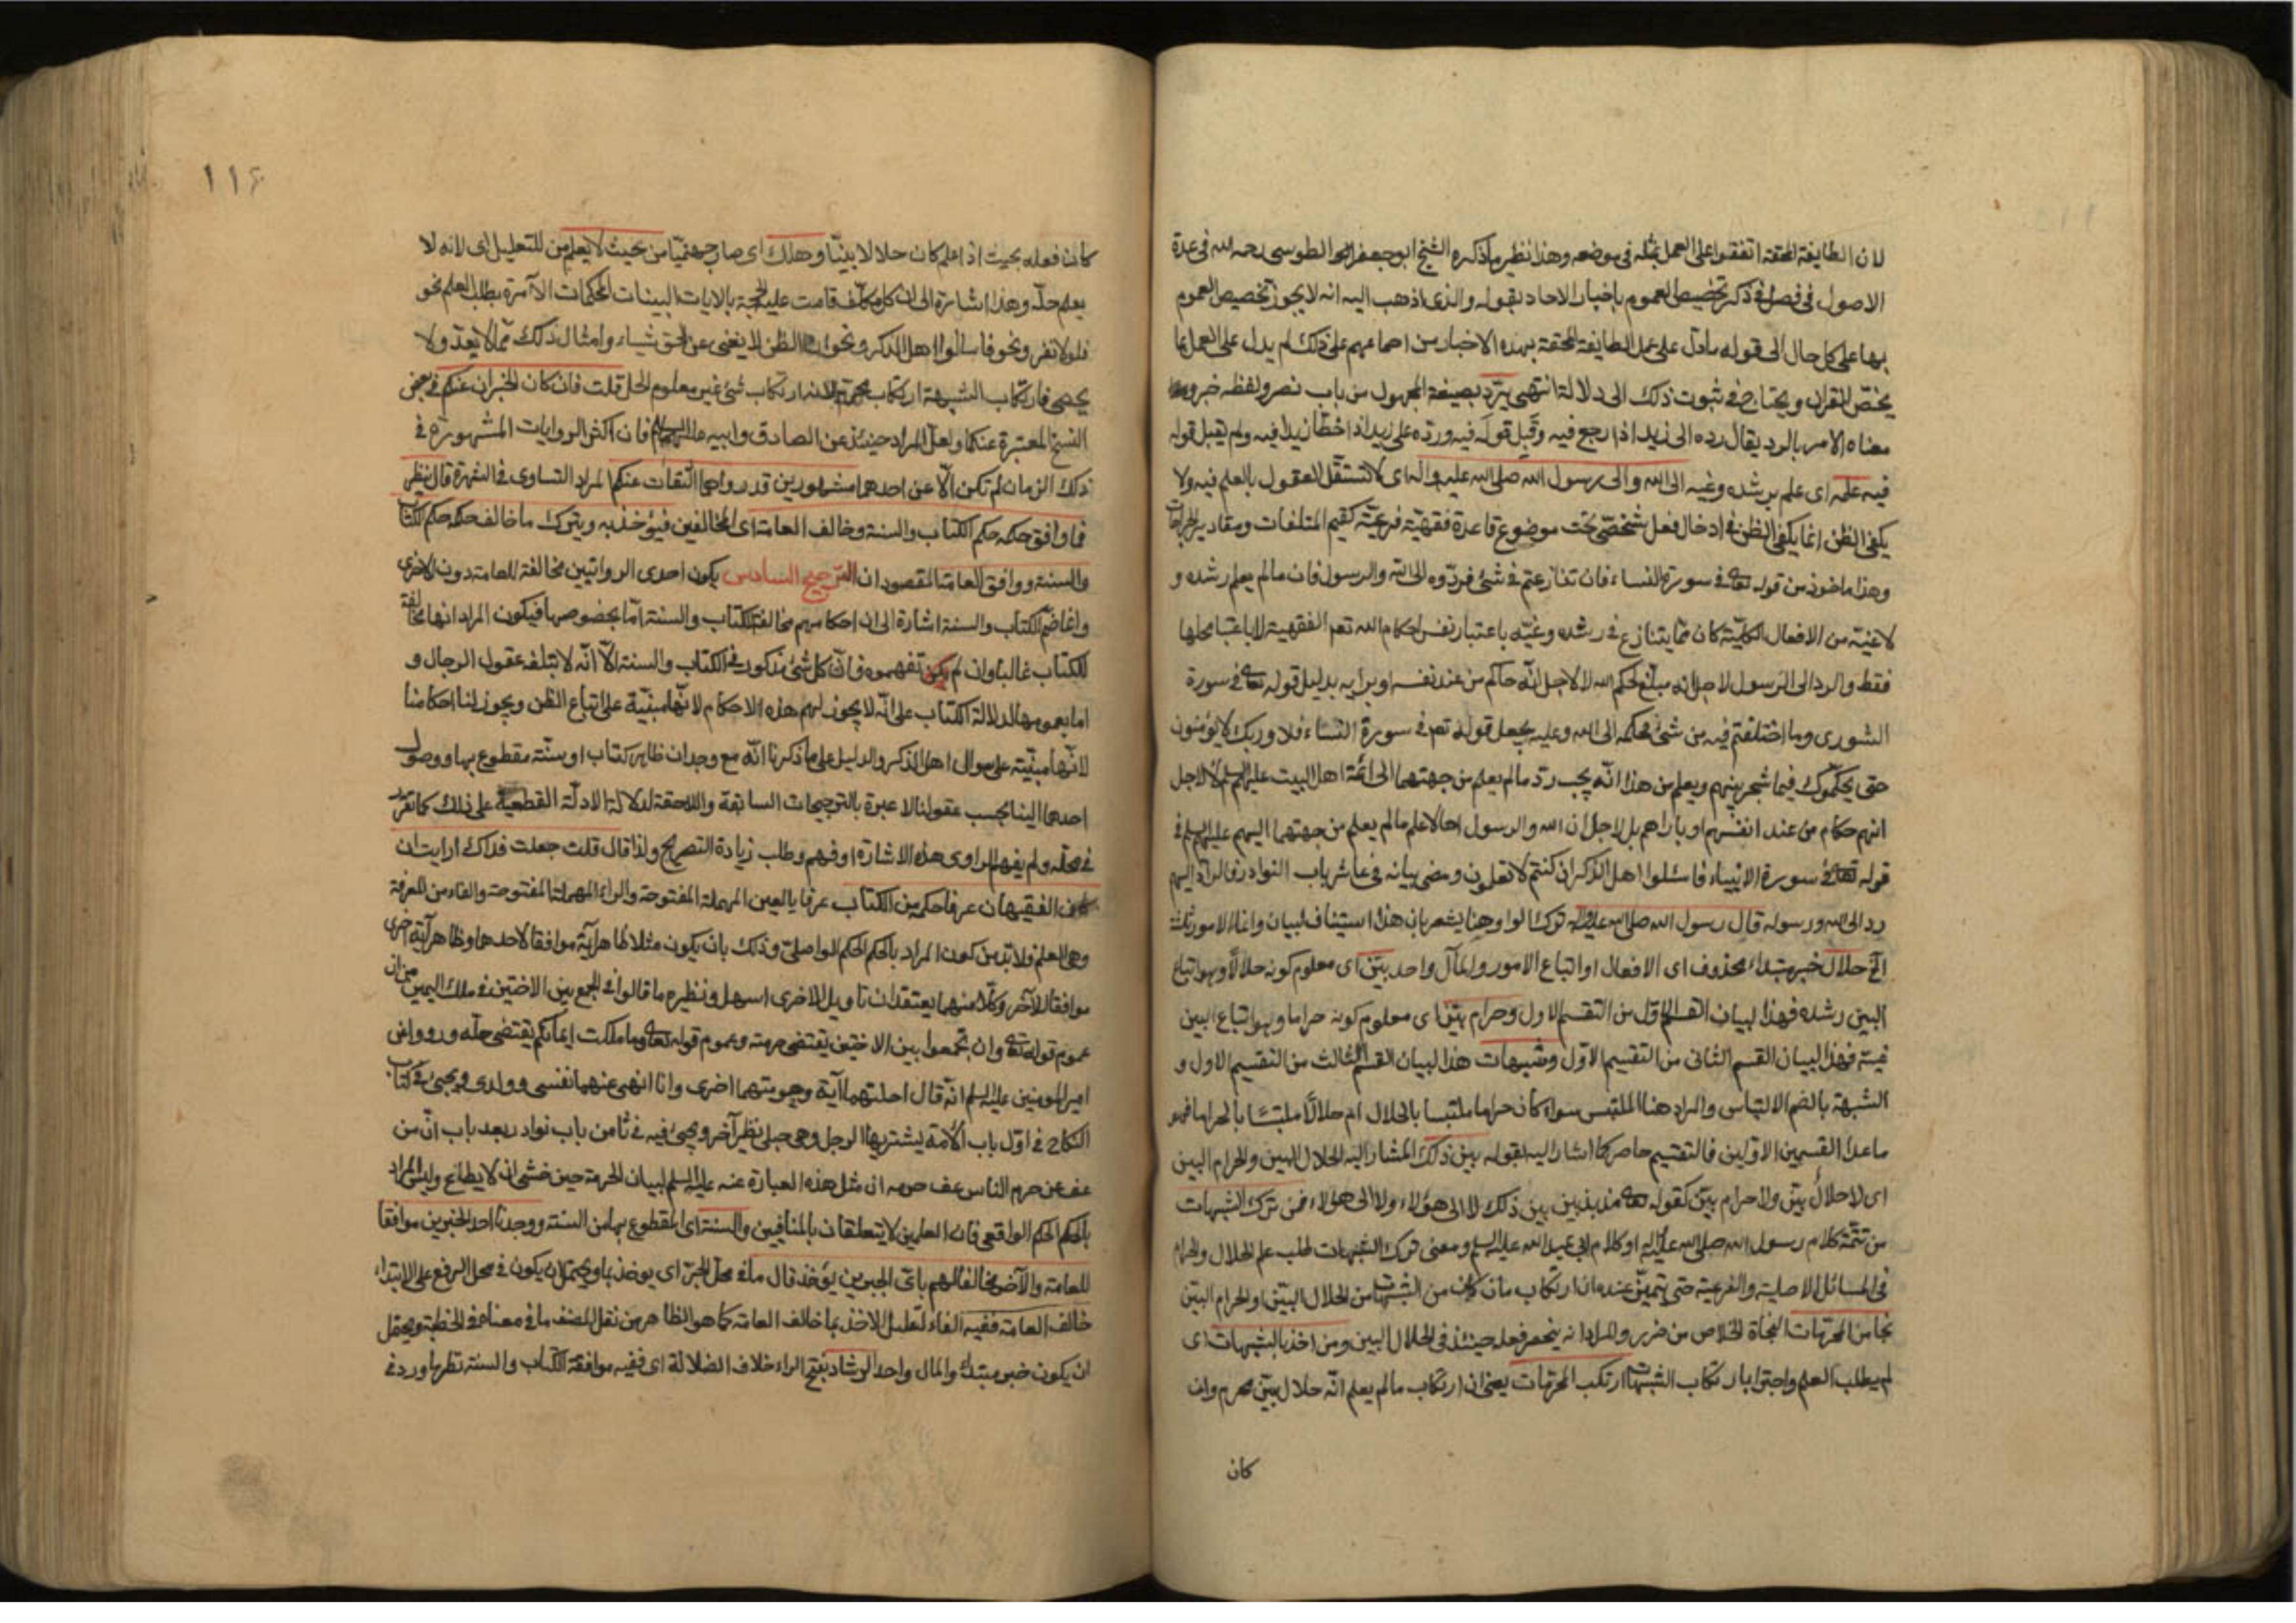 لان الطايفة المحقة اتفقوا على العمل بمثله فى موضعه وهذا نظير ما ذكره الشيخ ابو جعفر الطوسى رحمه الله فى عدة
الاصول فى فصل فى ذكر تخصيص العموم باخبار الاحاد بقوله والذى اذهب اليه انه لا يجوز تخصيص العموم
بها على كل حال الى قوله ما دل على عمل الطايفة المحقة بهذه الاخبار من اجماعهم على ذلك لم يدل على العمل بما
يخص القران ويحتاج فى ثبوت ذلك الى دلالة انتهى يرد بصيغة المجهول من باب نصر ولفظه خبر
معناه الامر بالرد يقال رده الى زيد اذا رجع فيه وقبل قوله فيه ورده على زيد اذا خطّا زيدا فيه ولم يقبل قوله
فيه علمه اى علم برشده وغيه الى الله والى رسول الله صلى الله عليه واله اى لا تستقل العقول بالعلم فيه ولا
يكفى الظن انما يكفى الظن فى ادخال فعل شخصى تحت موضوع قاعدة فقهية فرعية كقيم المتلفات ومقادير الجراحات
وهذا ماخوذ من قوله تعالى فى سورة النساء فان تنازعتم فى شئ فردوه الى الله والرسول فان ما لم يعلم رشده و
لا غيه من الافعال الكلية كان مما يتنازع فى رشده وغيه باعتبار نفس احكام الله تعم الفقهية لا باعتبا محلها
فقط والرد الى الرسول لاجل انه مبلغ لحكم الله لا لاجل انه حاكم من عند نفسه او برايه بدليل قوله تعالى فى سورة
الشورى وما اختلفتم فيه من شئ فحكمه الى الله وعليه يحمل قوله تعم فى سورة النساء فلا وربك لا يؤمنون
حتى يحكموك فيما شجر بينهم ويعلم من هذا انه يجب رد ما لم يعلم من جهتهما الى ائمة اهل البيت عليهم السلم لا لاجل
انهم حكام من عند انفسهم او باراهم بل لاجل ان الله والرسول احالا علم ما لم يعلم من جهتهما اليهم عليهم السلم فى
قوله تعالى فى سورة الانبياء فاسئلوا اهل الذكر ان كنتم لا تعلمون ومضى بيانه فى عاشر باب النوادر فالراد اليهم
رد الى الله ورسوله قال رسول الله صلى الله عليه واله ترك الواو هنا يشعر بان هذا استيناف لبيان وانما الامور ثلثة
الخ حلال خبر مبتداء محذوف اى الافعال او اتباع الامور والمآل واحد بيّن اى معلوم كونه حلالا وهو اتباع
البين رشده فهذا لبيان القسم الاول من التقسيم الاول وحرام بيّن اى معلوم كونه حراما وهو اتباع البين
غيه فهذا لبيان القسم الثانى من التقسيم الاول وشبهات هذا لبيان القسم الثالث من التقسيم الاول و
الشبهة بالضم الالتباس والمراد هنا الملتبس سواء كان حراما ملتبسا بالحلال ام حلالا ملتبسا بالحرام فهو
ما عدا القسمين الاولين فالتقسيم حاصر كما اشار اليه بقوله بين ذلك المشار اليه الحلال البين والحرام البين
اى لا حلال بيّن ولا حرام بيّن كقوله تعالى مذبذبين بين ذلك لا الى هؤلاء ولا الى هؤلاء فمن ترك الشبهات
من تتمة كلام رسول الله صلى الله عليه واله او كلام ابى عبد الله عليه السلم ومعنى ترك الشبهات طلب علم الحلال والحرام
فى المسائل الاصلية والفرعية حتى يتميز عنده ان ارتكاب ما كان من الشبهات من الحلال البيّن او الحرام البيّن
نجا من المحرمات النجاة الخلاص من ضرر والمراد انه ينحصر فعله حينئذ فى الحلال البين ومن اخذ بالشبهات اى
لم يطلب العلم واجترا بارتكاب الشبهات ارتكب المحرمات يعنى ان ارتكاب ما لم يعلم انه حلال بيّن محرم وان
كان
١١٦
كان فعله بحيث اذا علم كان حلالا بيّنا وهلك اى صار جهنميّا من حيث لا يعلم من للتعليل اى لانه لا
يعلم حلّه وهذا اشارة الى ان كل مكلّف قامت عليه الحجة بالايات البينات المحكمات الآمرة بطلب العلم نحو
فلولا نفر ونحو فاسالوا اهل الذكر ونحو ان الظن لا يغنى عن الحق شياء وامثال ذلك مما لا يعدّ ولا
يحصى فارتكاب الشبهة ارتكاب محرم لانه ارتكاب شئ غير معلوم الحل قلت فان كان الخبران عنكم فى بعض
النسخ المعتبرة عنكما ولعل المراد حينئذ عن الصادق وابيه عليهما السلام فان اكثر الروايات المشهورة فى
ذلك الزمان لم تكن الّا عن احدهما مشهورين قد رواهما الثقات عنكم المراد التساوى فى الشهرة قال ينظر
فما وافق حكمه حكم الكتاب والسنة وخالف العامة اى المخالفين فيؤخذ به ويترك ما خالف حكمه حكم الكتاب
والسنة ووافق العامة المقصود ان الترجيح السادس يكون احدى الروايتين مخالفة للعامة دون الاخرى
وانما ضم الكتاب والسنة اشارة الى ان احكامهم مخالفة للكتاب والسنة امّا بخصوصها فيكون المراد انها مخالفة
للكتاب غالبا وان لم يكن تفهموه فان كل شئ مذكور فى الكتاب والسنة الا انّه لا يبلغه عقول الرجال و
اما بعمومها لدلالة الكتاب على انّه لا يجوز لهم هذه الاحكام لانّها مبنيّة على اتباع الظن ويجوز لنا احكامنا
لانّها مبنيّة على سوال اهل الذكر والدليل على ما ذكرنا انّه مع وجدان ظاهر كتاب او سنّة مقطوع بها ووصول
احدهما الينا بحسب عقولنا لا عبرة بالترجيحات السابقة واللاحقة لدلالة الادلّة القطعية على ذلك كما تقرر
فى محله ولم يفهم الراوى هذه الاشارة او فهم وطلب زيادة التصريح ولذا قال قلت جعلت فداك ارايت ان
كان الفقيهان عرفا حكمه من الكتاب عرفا بالعين المهملة المفتوحة والراء المهملة المفتوحة والفاء من المعرفة
وهى العلم فلا بدّ من كون المراد بالحكم الحكم الواصلىّ وذلك بان يكون مثلا ظاهر آية موافقا لاحدهما وظاهر آية اخرى
موافقا للآخر وكل منهما يعتقد ان تاويل الاخرى اسهل ونظيره ما قالوا فى الجمع بين الاختين فى ملك اليمين من ان
عموم قوله تعالى وان تجمعوا بين الاختين يقتضى حرمته وعموم قوله تعالى وما ملكت ايمانكم يقتضى حله ورووا عن
امير المومنين عليه السلم انّه قال احلتهما آية وحرمتهما اخرى وانا انهى عنهما نفسى وولدى ويجئ فى كتاب
النكاح فى اوّل باب الامة يشتريها الرجل وهى حبلى نظير آخر ويجئ فيه فى ثامن باب نوادر بعد باب انّ من
عف عن حرم الناس عف حرمه ان مثل هذه العبارة عنه عليه السلم لبيان الحرمة حين خشى ان لا يطاع وليس المراد
بالحكم الحكم الواقعى فان العلمين لا يتعلقان بالمتنافيين والسنة اى المقطوع بها من السنة ووجدنا احد الخبرين موافقا
للعامة والآخر مخالفا لهم باىّ الخبرين يؤخذ قال ما فى محلّ الجرّ اى يوخذ بما ويحتمل ان يكون فى محل الرفع على الابتداء
خالف العامة ففيه الفاء لتعليل الاخذ بما خالف العامة كما هو الظاهر من نقل المصنف ما فى معناه فى الخطبة ويحتمل
ان يكون خبر مبتداء والمال واحد الرشاد بفتح الراء خلاف الضلالة اى ففيه موافقة الكتاب والسنة نظرا ورد فى